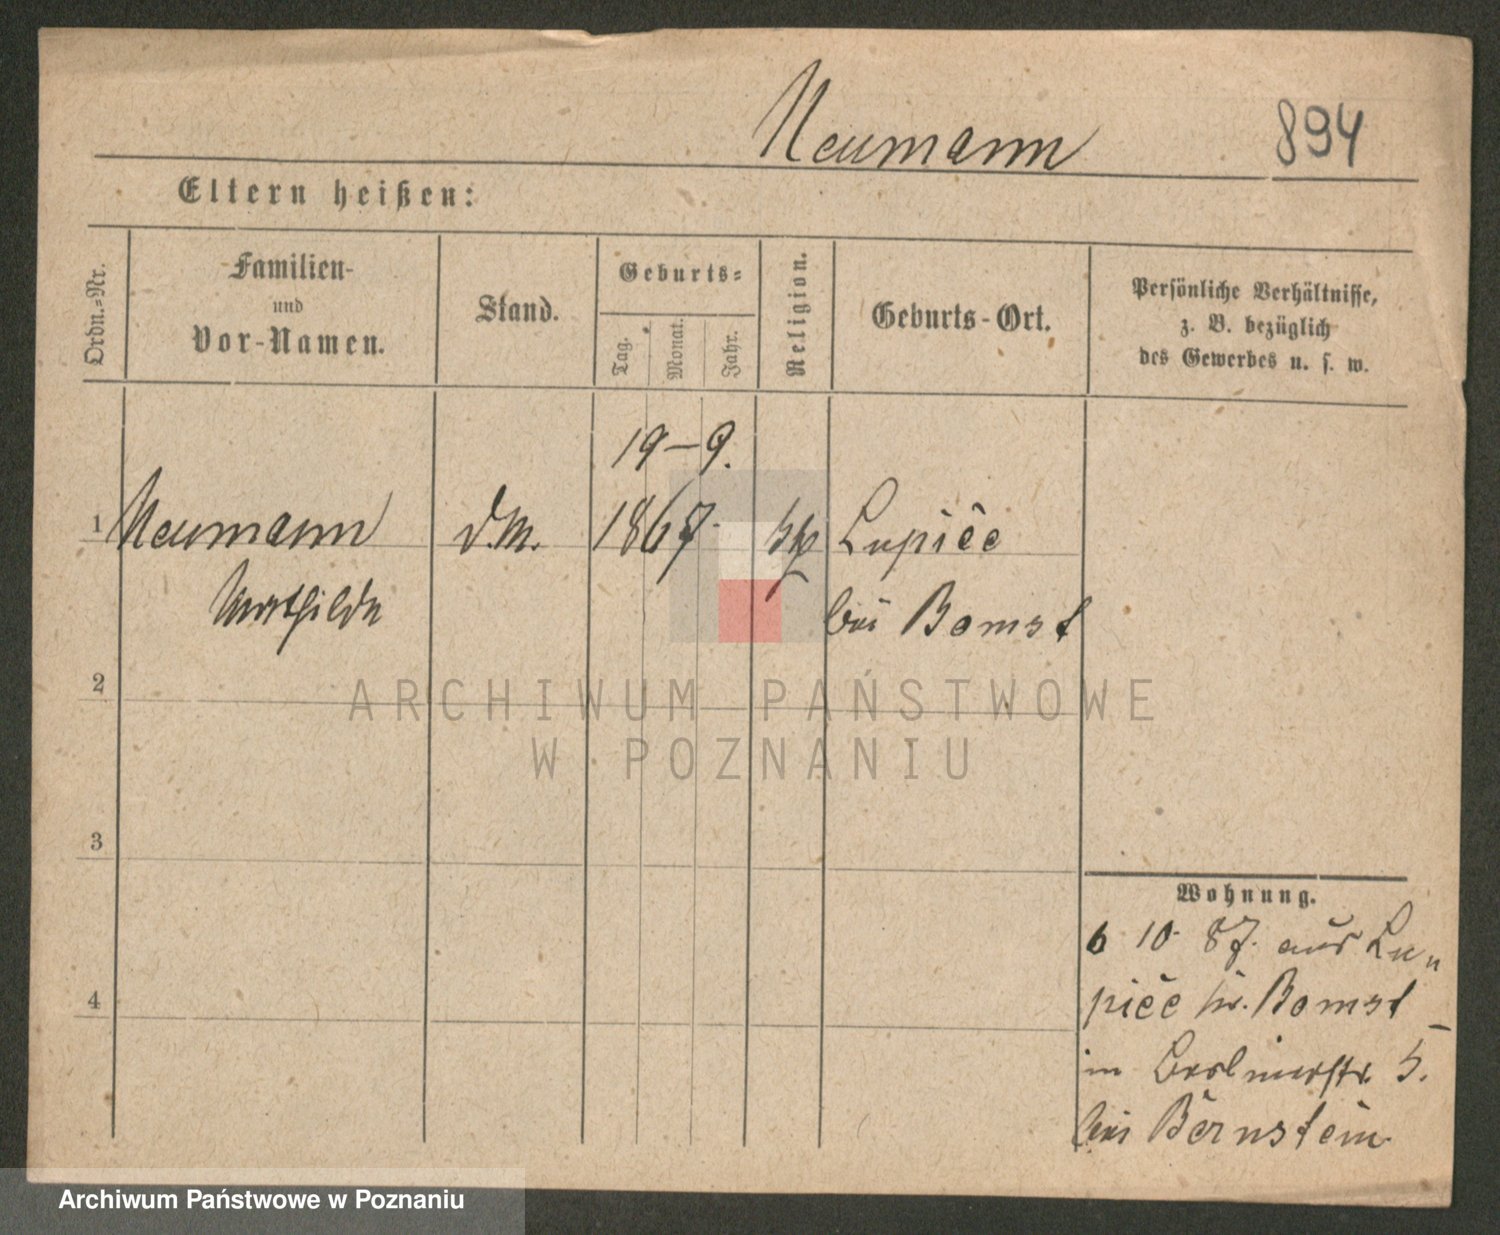 Neumann 894
Eltern heißen:
Ordn.-Nr.
Familien-
und
Vor-Namen.
Stand.
Geburts-
Tag.
Monat.
Jahr.
Religion.
Geburts-Ort.
Persönliche Verhältnisse,
z. B. bezüglich
des Gewerbes u. s. w.
19-9.
1 Neumann d.M. 1867 Lupice
Mathilde bei Bomst
2
3
4
Wohnung.
6 10 87. aus Lu"
pice Kr. Bomst -
in Berlinerstr. 5.
bei Bernstein
ARCHIWUM PAŃSTWOWE
W POZNANIU
Archiwum Państwowe w Poznaniu